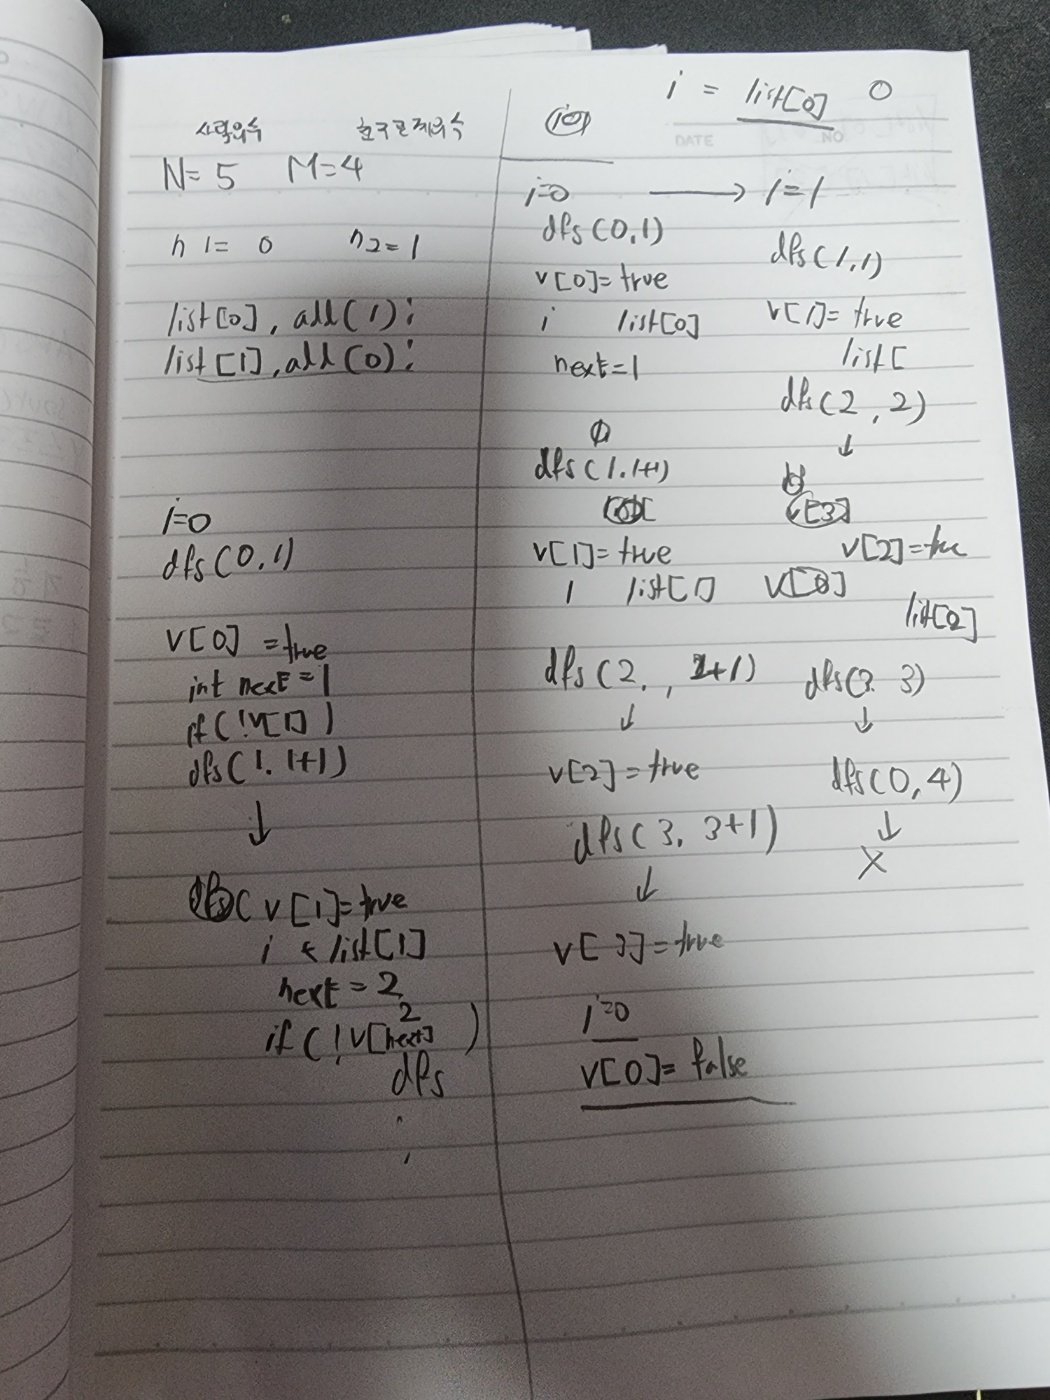 사람의 수 친구관계의 수
N= 5 M=4
n 1= 0 n2=1
list[0], add(1);
list[1], add(0);
i=0
dfs(0,1)
v[0] =true
int next=1
if(!v[1])
dfs(1. 1+1)
↓
v[1]=true
i ← list[1]
next = 2
2
if(!v[next])
dfs
i = list[0] 0
i=0 → i=1
dfs(0,1)
v[0]=true
i list[0]
next=1
dfs(1.1+1)
v[1]=true
1 list[1]
dfs(2, , 2+1)
↓
v[2]=true
dfs(3, 3+1)
↓
v[3]=true
i=0
v[0]= false
dfs(1,1)
v[1]= true
list[
dfs(2,2)
↓
v[2]=true
list[2]
dfs(3. 3)
↓
dfs(0,4)
↓
X